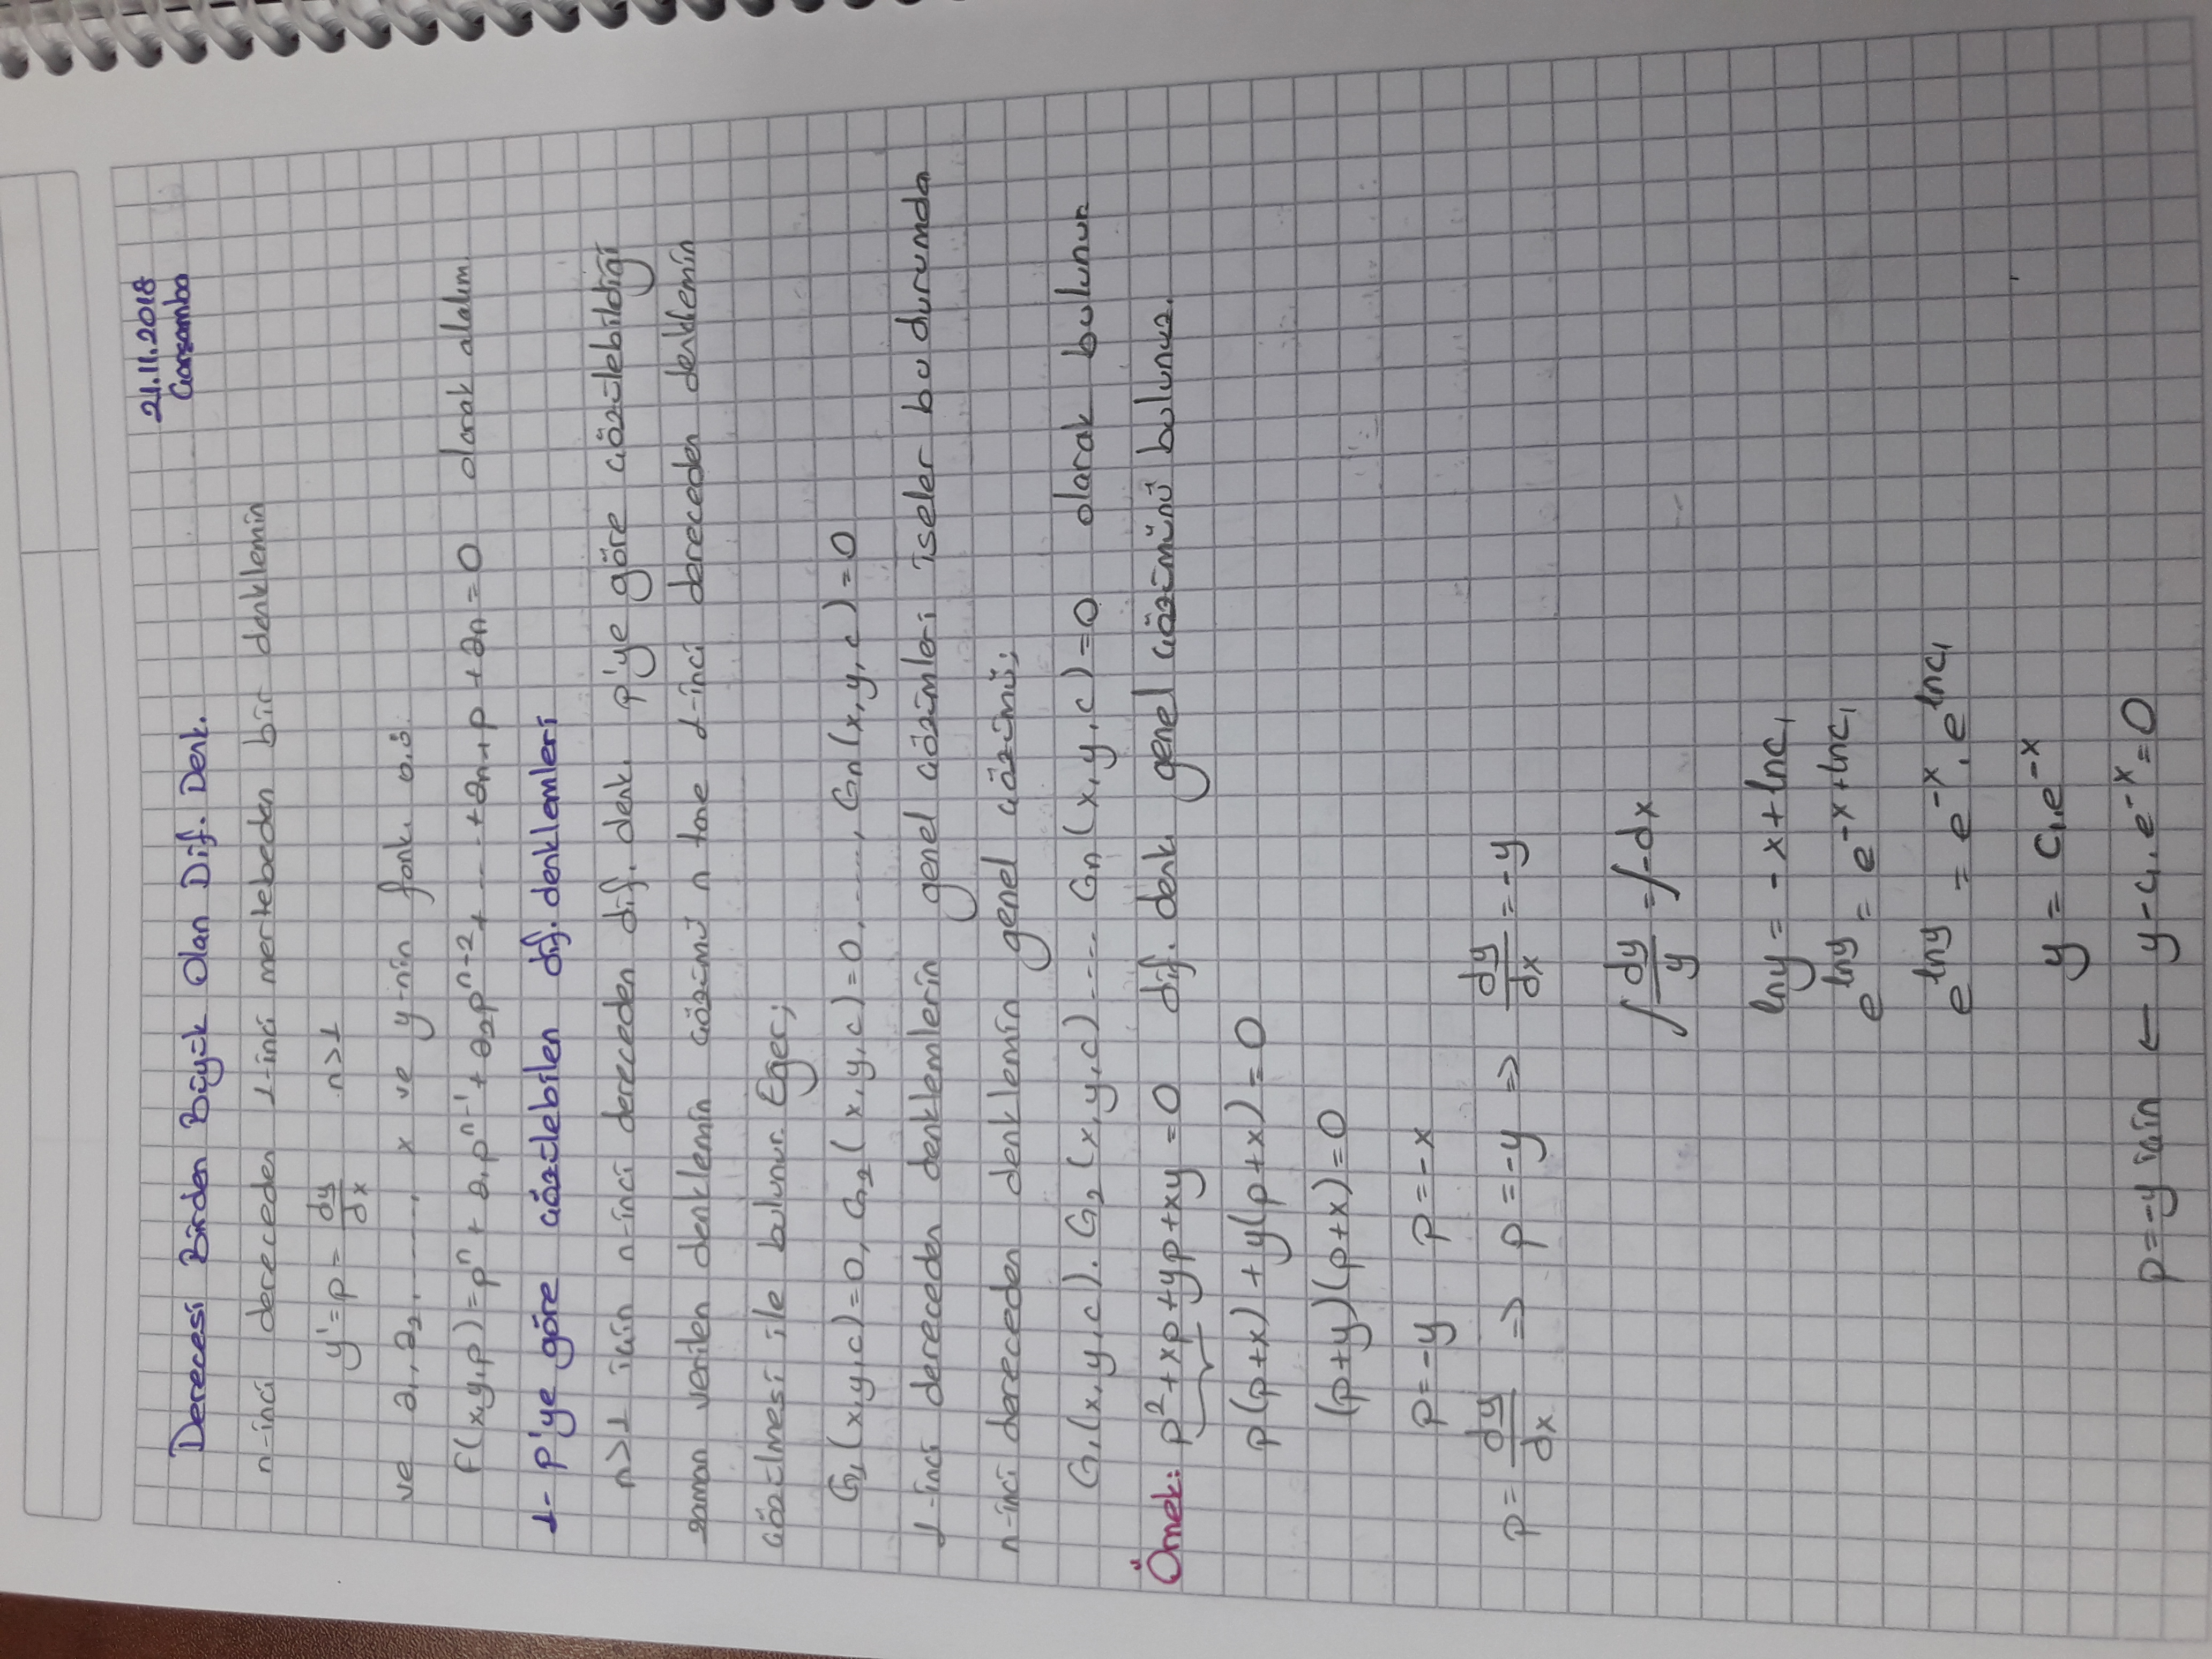 21.11.2018
Çarşamba
Derecesi Birden Büyük Olan Dif. Denk.
n-inci dereceden 1-inci mertebeden bir denklemin
y' = p = dy/dx n>1
ve a₁, a₂, ......, x ve y-nin fonk. o.ü.
F(x,y,p) = pⁿ + a₁pⁿ⁻¹ + a₂pⁿ⁻² + ... + aₙ₋₁p + aₙ = 0 olarak alalım
1- p'ye göre çözülebilen dif. denklemleri
n>1 için n-inci dereceden dif. denk. p'ye göre çözülebildiği
zaman verilen denklemin çözümü n tane 1-inci dereceden denklemin
çözülmesi ile bulunur. Eğer;
G₁(x,y,c)=0, G₂(x,y,c)=0, ....., Gn(x,y,c)=0
1-inci dereceden denklemlerin genel çözümleri iseler bu durumda
n-inci dereceden denklemin genel çözümü;
G₁(x,y,c). G₂(x,y,c) ..... Gn(x,y,c)=0 olarak bulunur
Örnek: p²+xp+yp+xy=0 dif. denk. genel çözümünü bulunuz.
p(p+x)+y(p+x)=0
(p+y)(p+x)=0
p=-y p=-x
p = dy/dx ⇒ p=-y ⇒ dy/dx = -y
∫ dy/y = ∫-dx
lny = -x+lnc₁
e^lny = e^-x+lnc₁
e^lny = e^-x . e^lnc₁
y = c₁.e^-x
p=-y için ← y-c₁.e^-x=0